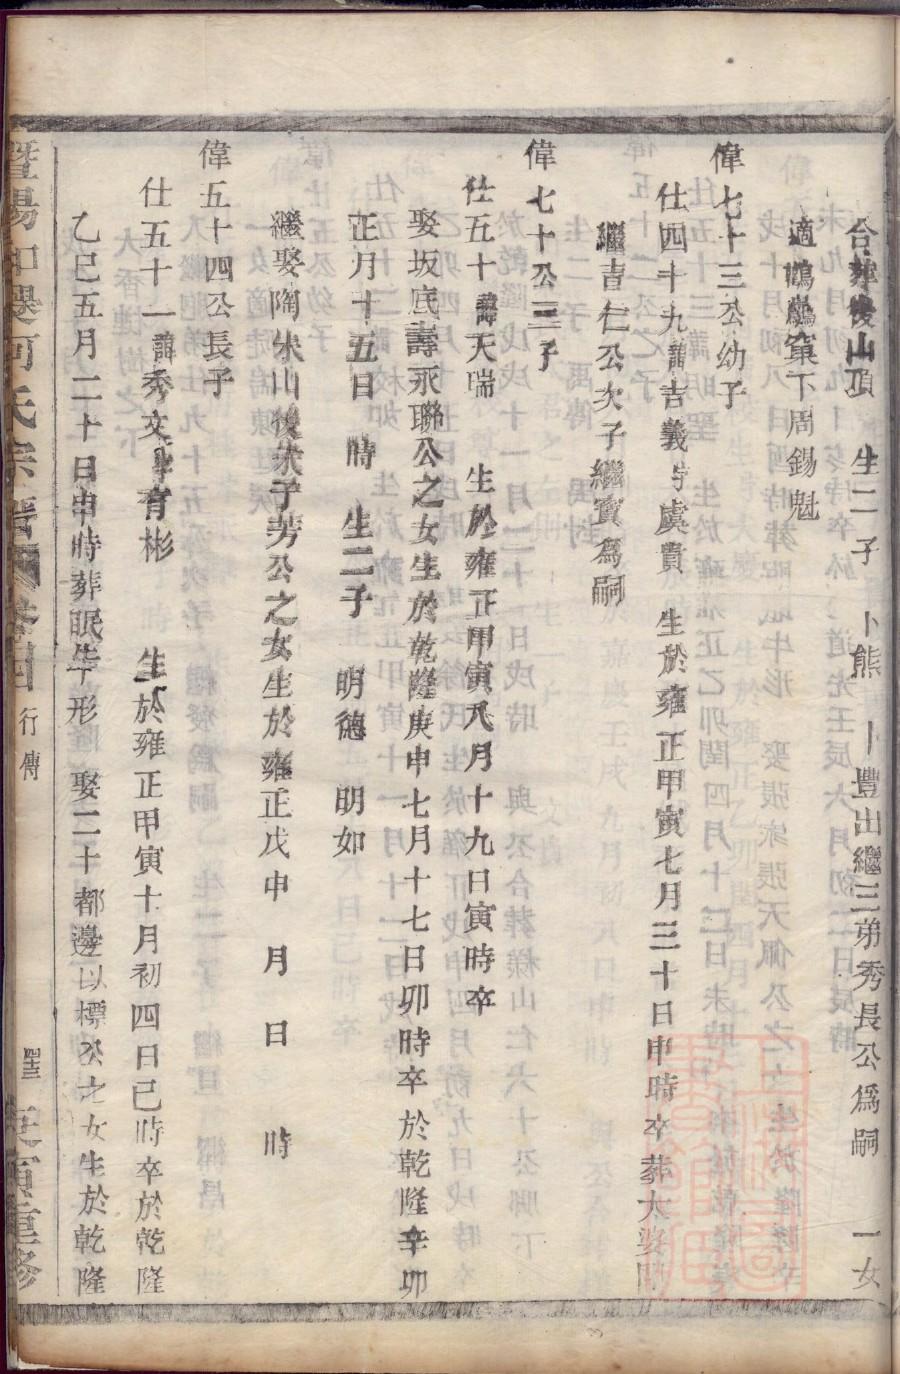 合葬後山頂　生二子　卜熊　卜豐出繼三弟秀長公為嗣　一女
適鵓鸕窠下周錫魁
偉七十三公幼子
仕四十九諱吉義字虞貴　生於雍正甲寅七月三十日申時卒葬大婆
繼吉仁公次子繼賓為嗣
偉七十公三子
仕五十諱天瑞　生於雍正甲寅八月十九日寅時卒
娶坂底壽永聯公之女生於乾隆庚申七月十七日卯時卒於乾隆辛卯
正月十五日　時　生二子　明德　明如
繼娶陶朱山後朱子芳公之女生於雍正戊申　月　日　時
偉五十四公長子
仕五十一諱秀文字育彬　生於雍正甲寅十月初四日巳時卒於乾隆
乙巳五月二十日申時葬眠牛形　娶二十都邊以標公之女生於乾隆
暨陽　何氏宗譜　卷四　行傳　寅重修